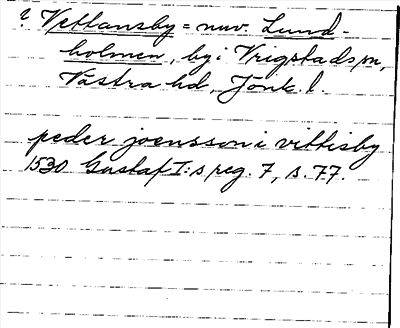 ? Vettansby = nuv. Lund-
holmen, by i Vrigstads sn,
Västra hd, Jönk. l.
peder joensson i vittisby
1530 Gustaf I:s reg. 7, s. 77.